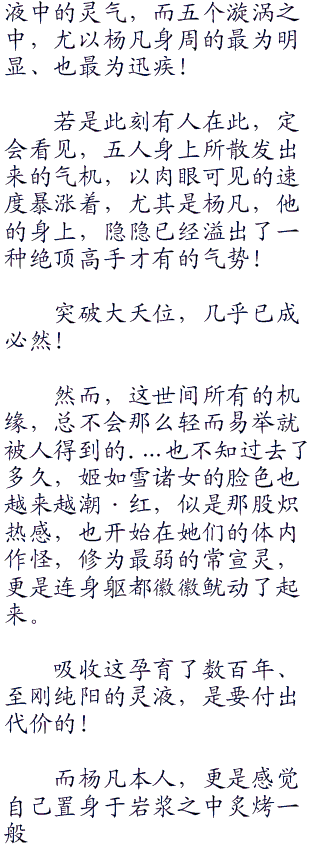 液中的灵气，而五个漩涡之
中，尤以杨凡身周的最为明
显、也最为迅疾！
若是此刻有人在此，定
会看见，五人身上所散发出
来的气机，以肉眼可见的速
度暴涨着，尤其是杨凡，他
的身上，隐隐已经溢出了一
种绝顶高手才有的气势！
突破大天位，几乎已成
必然！
然而，这世间所有的机
缘，总不会那么轻而易举就
被人得到的....也不知过去了
多久，姬如雪诸女的脸色也
越来越潮·红，似是那股炽
热感，也开始在她们的体内
作怪，修为最弱的常宣灵，
更是连身躯都徽徽鱿动了起
来。
吸收这孕育了数百年、
至刚纯阳的灵液，是要付出
代价的！
而杨凡本人，更是感觉
自己置身于岩浆之中炙烤一
般